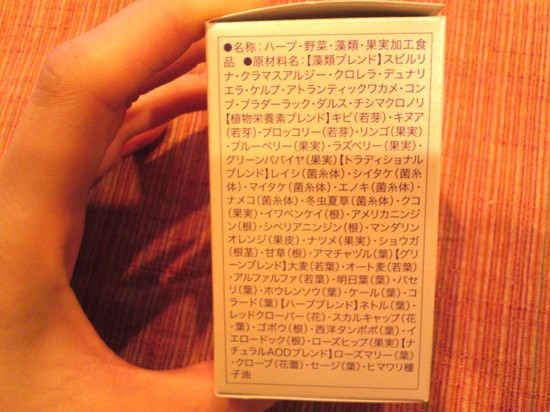 ●名称:ハーブ・野菜・藻類・果実加工食
品 ●原材料名:【藻類ブレンド】スピルリ
ナ・クラマスアルジー・クロレラ・デュナリ
エラ・ケルプ・アトランティックワカメ・コン
ブ・ブラダーラック・ダルス・チシマクロノリ
【植物栄養素ブレンド】キビ(若芽)・キヌア
(若芽)・ブロッコリー(若芽)・リンゴ(果実)
・ブルーベリー(果実)・ラズベリー(果実)・
グリーンパパイヤ(果実)【トラディショナル
ブレンド】レイシ(菌糸体)・シイタケ(菌糸
体)・マイタケ(菌糸体)・エノキ(菌糸体)・
ナメコ(菌糸体)・冬虫夏草(菌糸体)・クコ
(果実)・イワベンケイ(根)・アメリカニンジ
ン(根)・シベリアニンジン(根)・マンダリン
オレンジ(果皮)・ナツメ(果実)・ショウガ
(根茎)・甘草(根)・アマチャヅル(葉)【グ
リーンブレンド】大麦(若葉)・オート麦(若葉)
・アルファルファ(若葉)・明日葉(葉)・パセ
リ(葉)・ホウレンソウ(葉)・ケール(葉)・コ
ラード(葉)【ハーブブレンド】ネトル(葉)・
レッドクローバー(花)・スカルキャップ(花
・葉)・ゴボウ(根)・西洋タンポポ(根)・イ
エロードック(根)・ローズヒップ(果実)【ナ
チュラルAODブレンド】ローズマリー(葉)
・クローブ(花蕾)・セージ(葉)・ヒマワリ種
子油